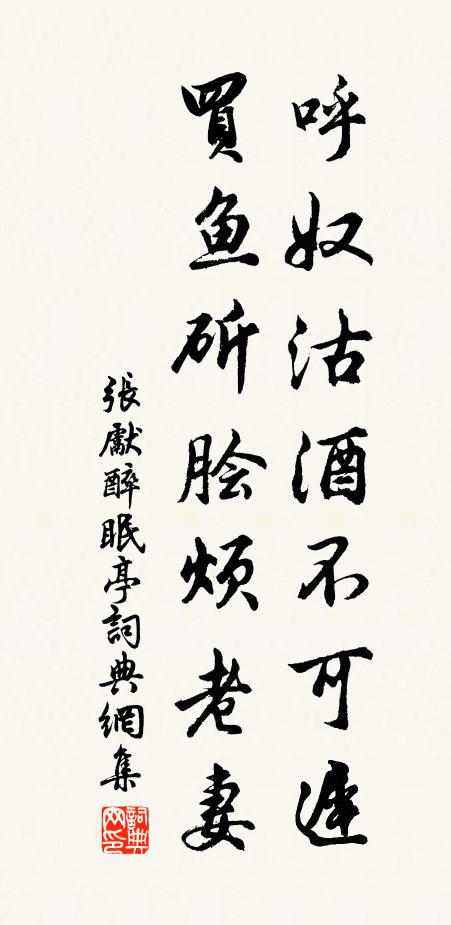 呼奴沽酒不可遲
買鱼斫脍烦老妻
張獻醉眠亭詞典網集
詞典
网印